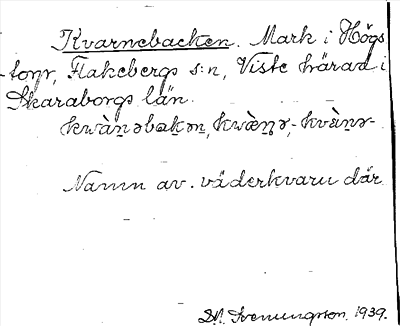 Kvarnebacken. Mark i Högs
torp, Flakebergs s:n, Viste härad i
Skaraborgs län.
kwàn̠əbakən̠, kwæ̀n̠ə,- kvæ̀n̠ə-
Namn av väderkvarn där.
1939.